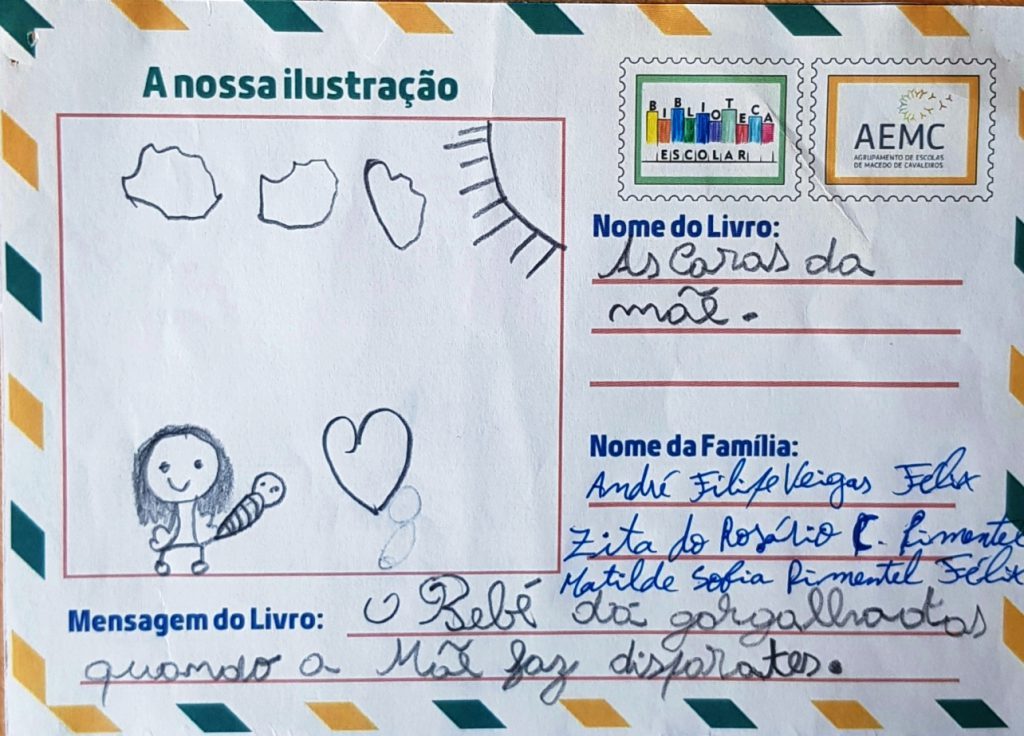 A nossa ilustração
BIBLIOTECA
ESCOLAR
AEMC
AGRUPAMENTO DE ESCOLAS
DE MACEDO DE CAVALEIROS
Nome do Livro:
As Caras da
mãe.
Nome da Família:
André Filipe Veigas Felix
Zita do Rosário C. Pimentel
Matilde Sofia Pimentel Félix
Mensagem do Livro: O Bebé dá gorgalhadas
quando a Mãe faz disparates.